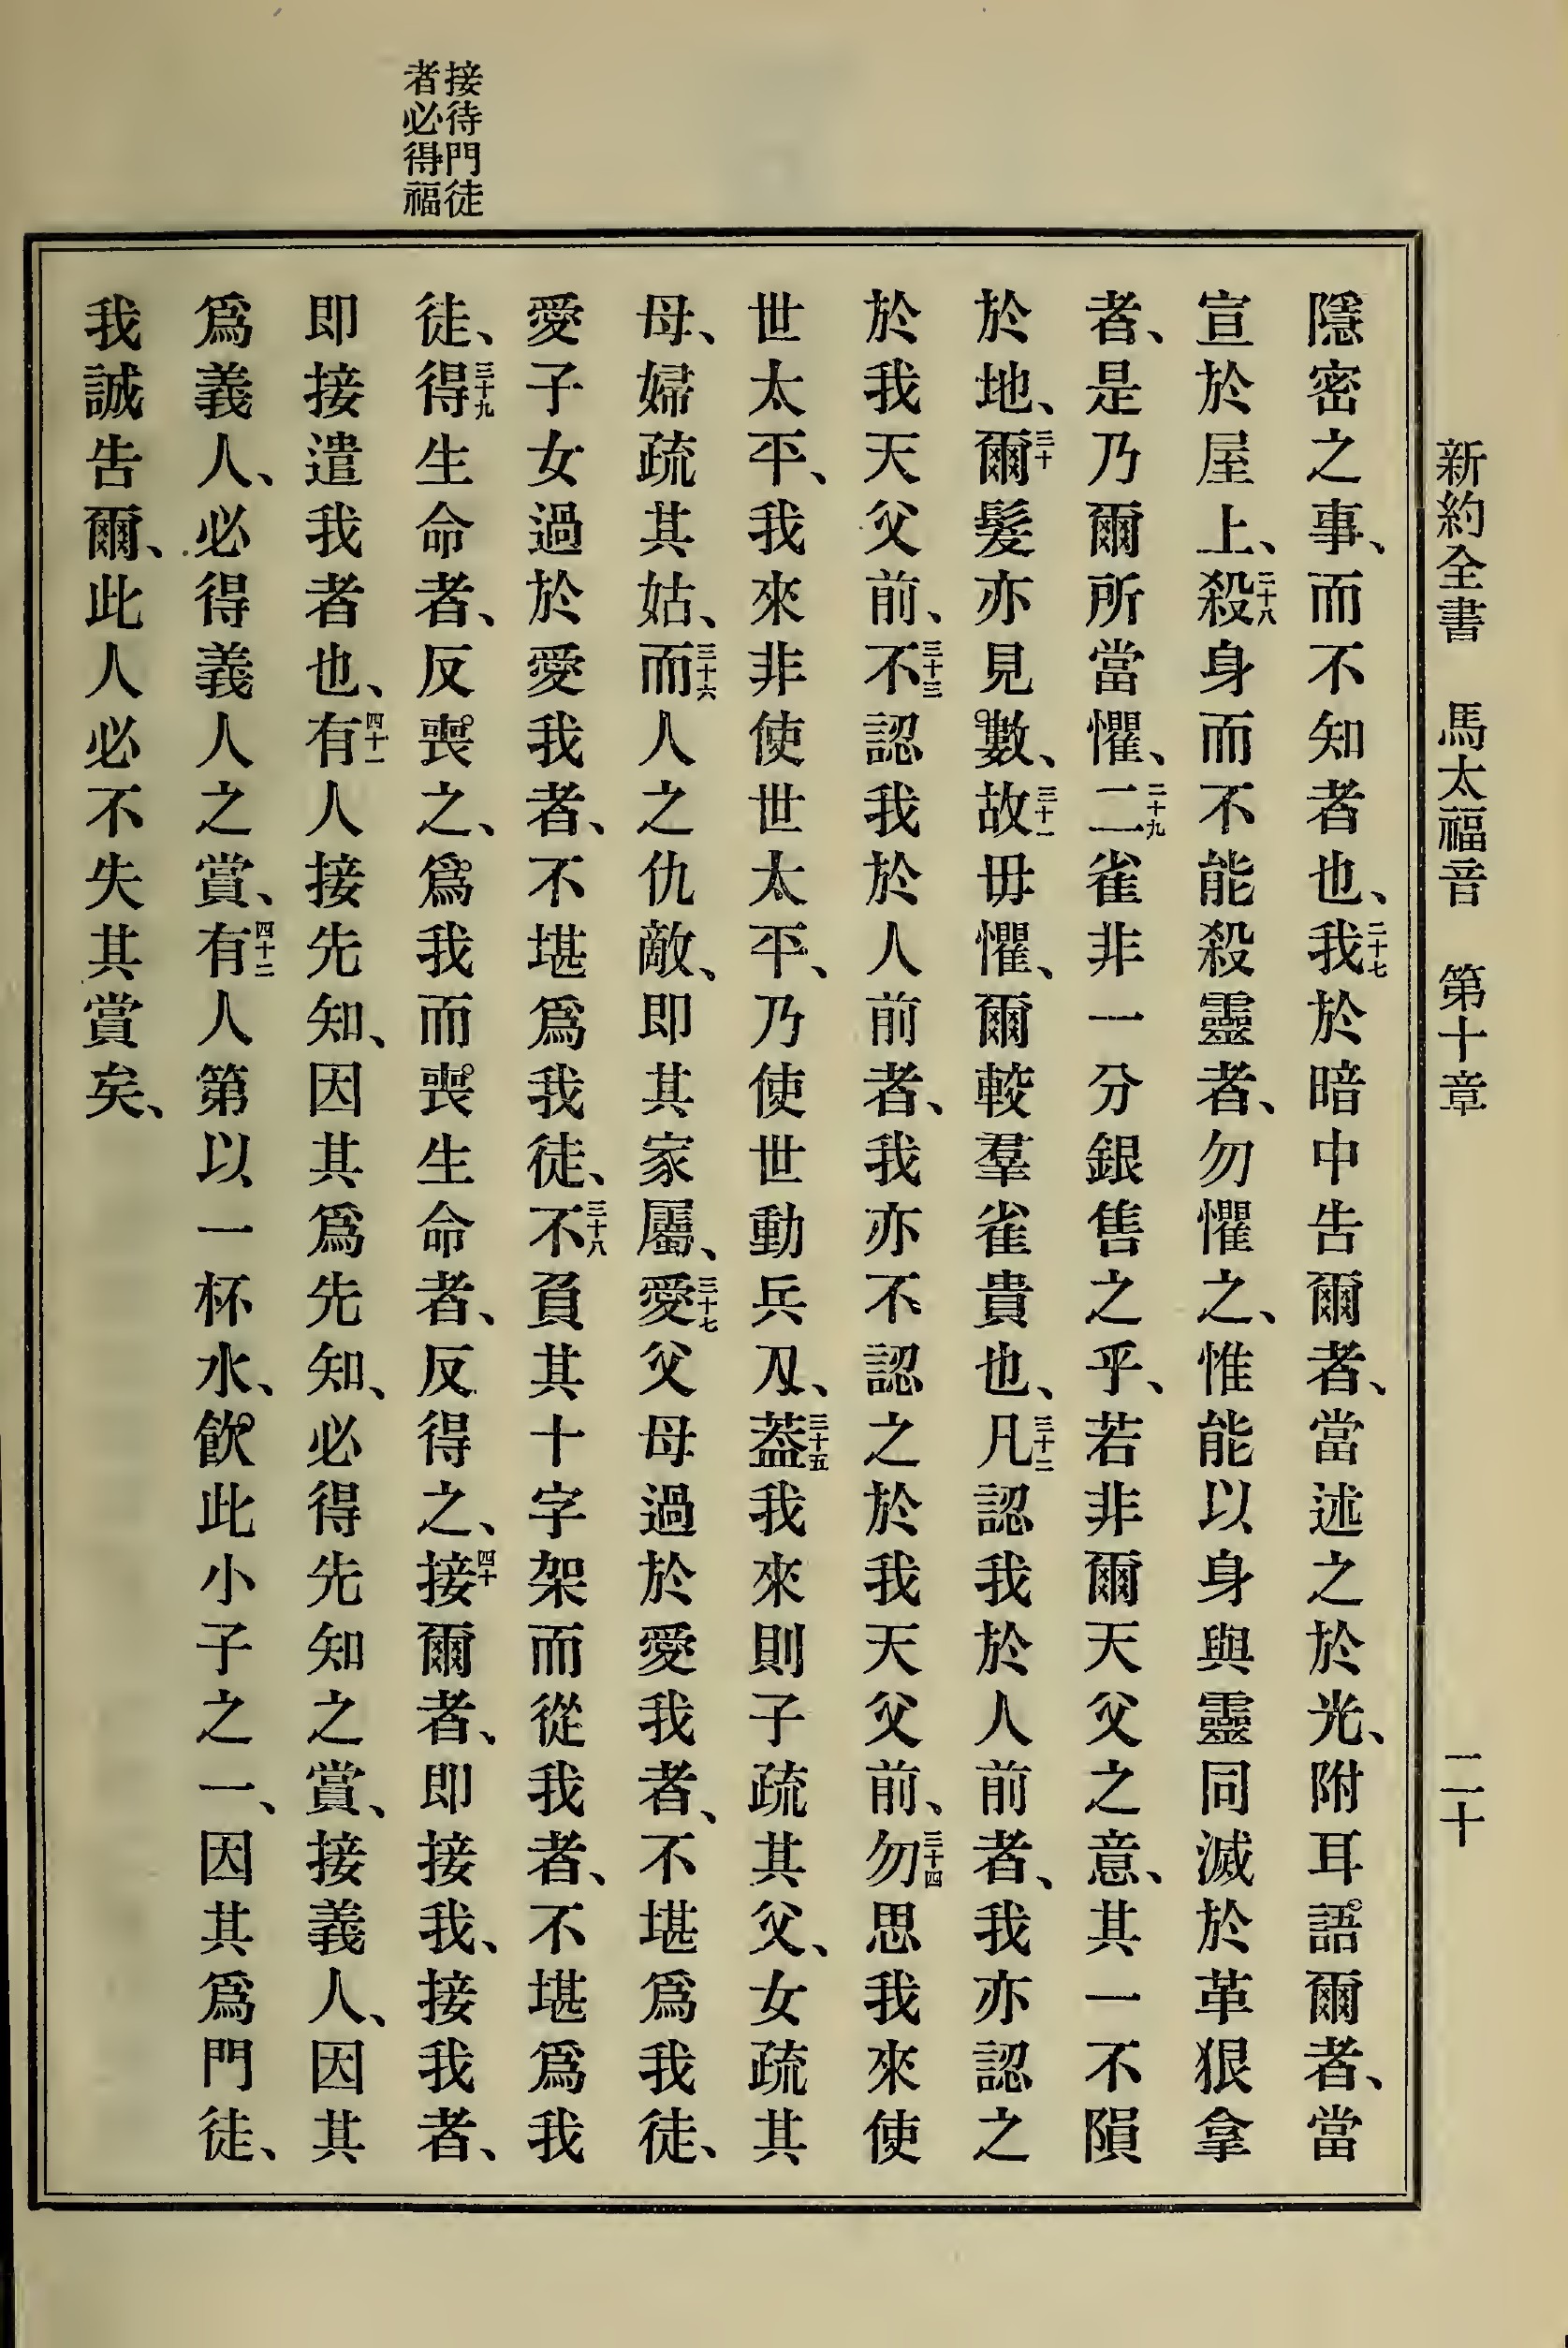 新約全書 馬太福音 第十章 二十
接待門徒
者必得福
隱密之事、而不知者也、二十七我於暗中告爾者、當述之於光、附耳語爾者、當
宣於屋上、二十八殺身而不能殺靈者、勿懼之、惟能以身與靈同滅於革狠拿
者、是乃爾所當懼、二十九二雀非一分銀售之乎、若非爾天父之意、其一不隕
於地、三十爾髮亦見數、三十一故毋懼、爾較羣雀貴也、三十二凡認我於人前者、我亦認之
於我天父前、三十三不認我於人前者、我亦不認之於我天父前、三十四勿思我來使
世太平、我來非使世太平、乃使世動兵刀、三十五葢我來則子疏其父、女疏其
母、婦疏其姑、三十六而人之仇敵、即其家屬、三十七愛父母過於愛我者、不堪爲我徒、
愛子女過於愛我者、不堪爲我徒、三十八不負其十字架而從我者、不堪爲我
徒、三十九得生命者、反喪之、爲我而喪生命者、反得之、四十接爾者、即接我、接我者、
即接遣我者也、四十一有人接先知、因其爲先知、必得先知之賞、接義人、因其
爲義人、必得義人之賞、四十二有人第以一杯水、飲此小子之一、因其爲門徒、
我誠告爾、此人必不失其賞矣、